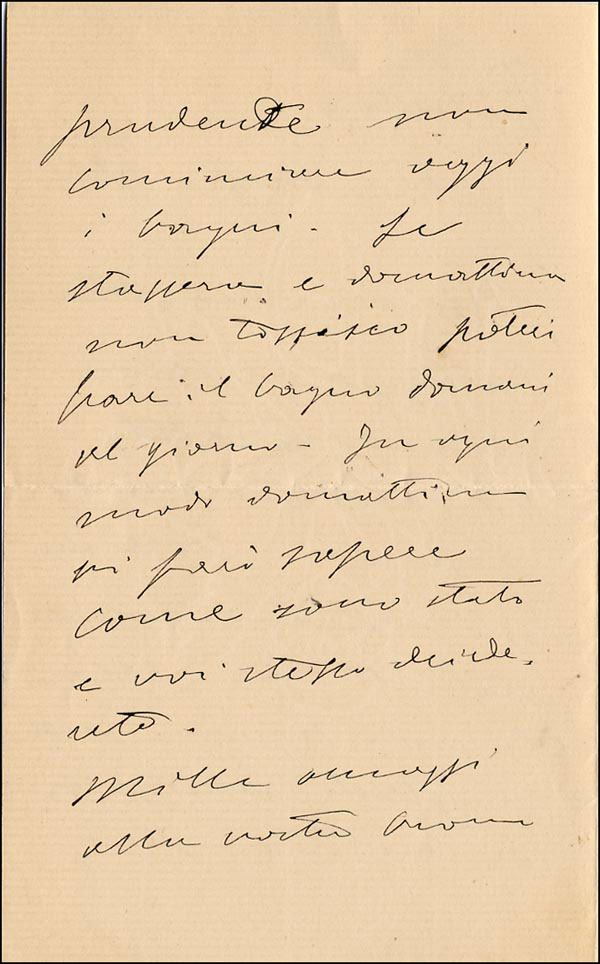 prudente non
cominciare oggi
i bagni - Se
stassera e domattina
non tossisco potrei
fare il bagno domani
al giorno - In ogni
modo domattina
vi farò sapere
come sono stato
e voi stesso decide-
rete.
Mille omaggi
alla vostra buona